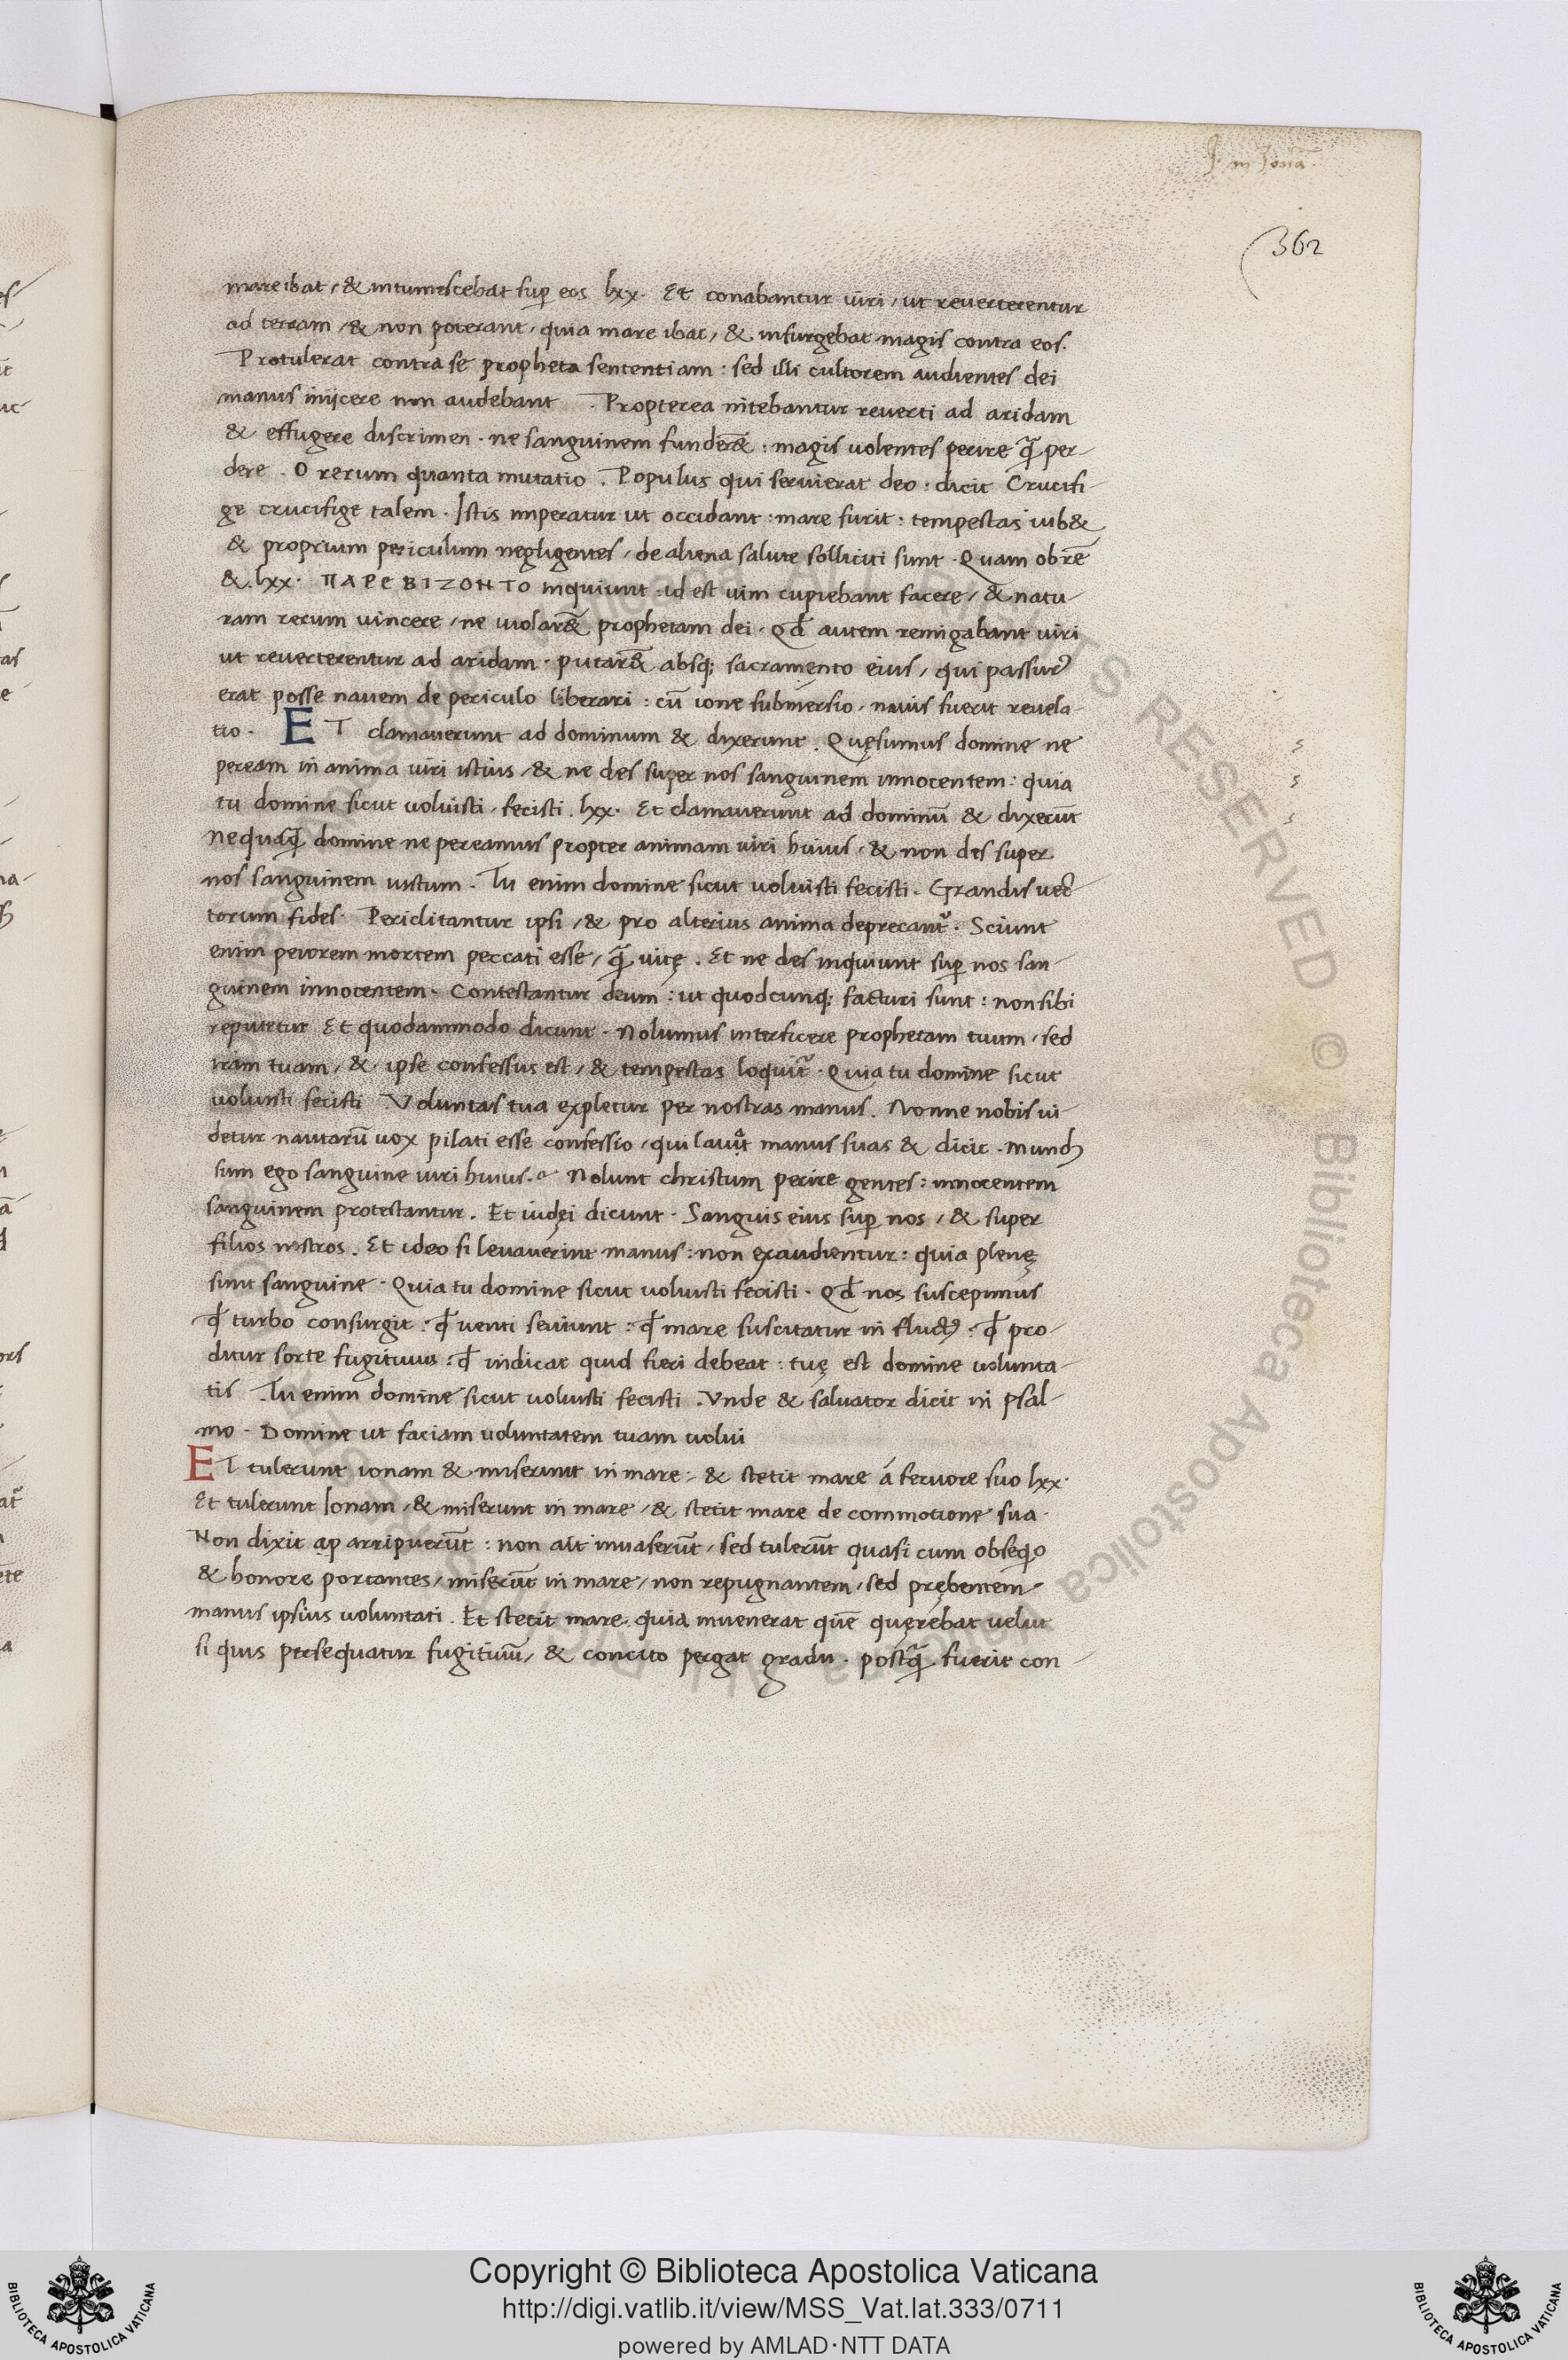 J. in Jonā.
362
mare ibat, & intumescebat sup̄ eos lxx. Et conabantur uiri, ut reuerterentur
ad terram, & non poterant, quia mare ibat, & insurgebat magis contra eos.
Protulerat contra se propheta sententiam: sed illi cultorem audientes dei
manus iniicere non audebant. Propterea nitebantur reuerti ad aridam
& effugere discrimen. ne sanguinem funder&̄: magis uolentes perire q̄ per-
dere. O rerum quanta mutatio. Populus qui seruierat deo: dicit Crucifi-
ge crucifige talem. Istis imperatur ut occidant: mare furit: tempestas iub&
& proprium periculum negligentes, de aliena salute solliciti sunt. Quam obrē
&. lxx. ΠΑΡΕΒΙΖΟΝΤΟ inquiunt. id est uim cupiebant facere, & natu-
ram rerum uincere, ne uiolar&̄ prophetam dei. Qđ autem remigabant uiri
ut reuerterentur ad aridam. putar&̄ absq; sacramento eius, qui passur᾽
erat posse nauem de periculo liberari: cū ione submersio, nauis fuerit reuela-
tio. ET clamauerunt ad dominum & dixerunt. Quęsumus domine ne
peream in anima uiri istius, & ne des super nos sanguinem innocentem: quia
tu domine sicut uoluisti, fecisti. lxx. Et clamauerunt ad dominū & dixerūt
Nequaq̄ domine ne pereamus propter animam uiri huius, & non des super
nos sanguinem iustum. Tu enim domine sicut uoluisti fecisti. Grandis uec-
torum fides. Periclitantur ipsi, & pro alterius anima deprecant᾽. Sciunt
enim peiorem mortem peccati esse, q̄ uitę. Et ne des inquiunt sup̄ nos san-
guinem innocentem. Contestantur deum: ut quodcunq; facturi sunt: non sibi
reputetur Et quodammodo dicunt. Nolumus interficere prophetam tuum, sed
iram tuam, & ipse confessus est, & tempestas loquit᾽. Quia tu domine sicut
uoluisti fecisti Voluntas tua expletur per nostras manus. Nonne nobis ui-
detur nautarū uox pilati esse confessio, qui lauat manus suas & dicit. Mundus
sum ego sanguine uiri huius. Nolunt christum perire gentes: innocentem
sanguinem protestantur. Et iudęi dicunt. Sanguis eius sup̄ nos, & super
filios nostros. Et ideo si leuauerint manus: non exaudientur: quia plenę
sunt sanguine. Quia tu domine sicut uoluisti fecisti. Qđ nos suscepimus
qđ turbo consurgit: qđ uenti seuiunt: qđ mare suscitatur in fluct᾽: qđ pro-
ditur sorte fugitiuus: qđ indicat quid fieri debeat: tuę est domine uolunta-
tis Tu enim domine sicut uoluisti fecisti. Vnde & saluator dicit in psal-
mo. Domine ut faciam uoluntatem tuam uolui
ET tulerunt ionam & miserunt in mare, & stetit mare á feruore suo lxx.
Et tulerunt Ionam, & miserunt in mare, & stetit mare de commotione sua.
Non dixit ap arripuerūt: non ait inuaserūt, sed tulerūt quasi cum obseqo
& honore portantes, miserūt in mare, non repugnantem, sed prębentem
manus ipsius uoluntati. Et stetit mare. quia inuenerat quē quęrebat uelut
si quis persequatur fugitiuū, & concito pergat gradu. postq̄ fuerit con-
Copyright © Biblioteca Apostolica Vaticana
http://digi.vatlib.it/view/MSS_Vat.lat.333/0711
powered by AMLAD·NTT DATA